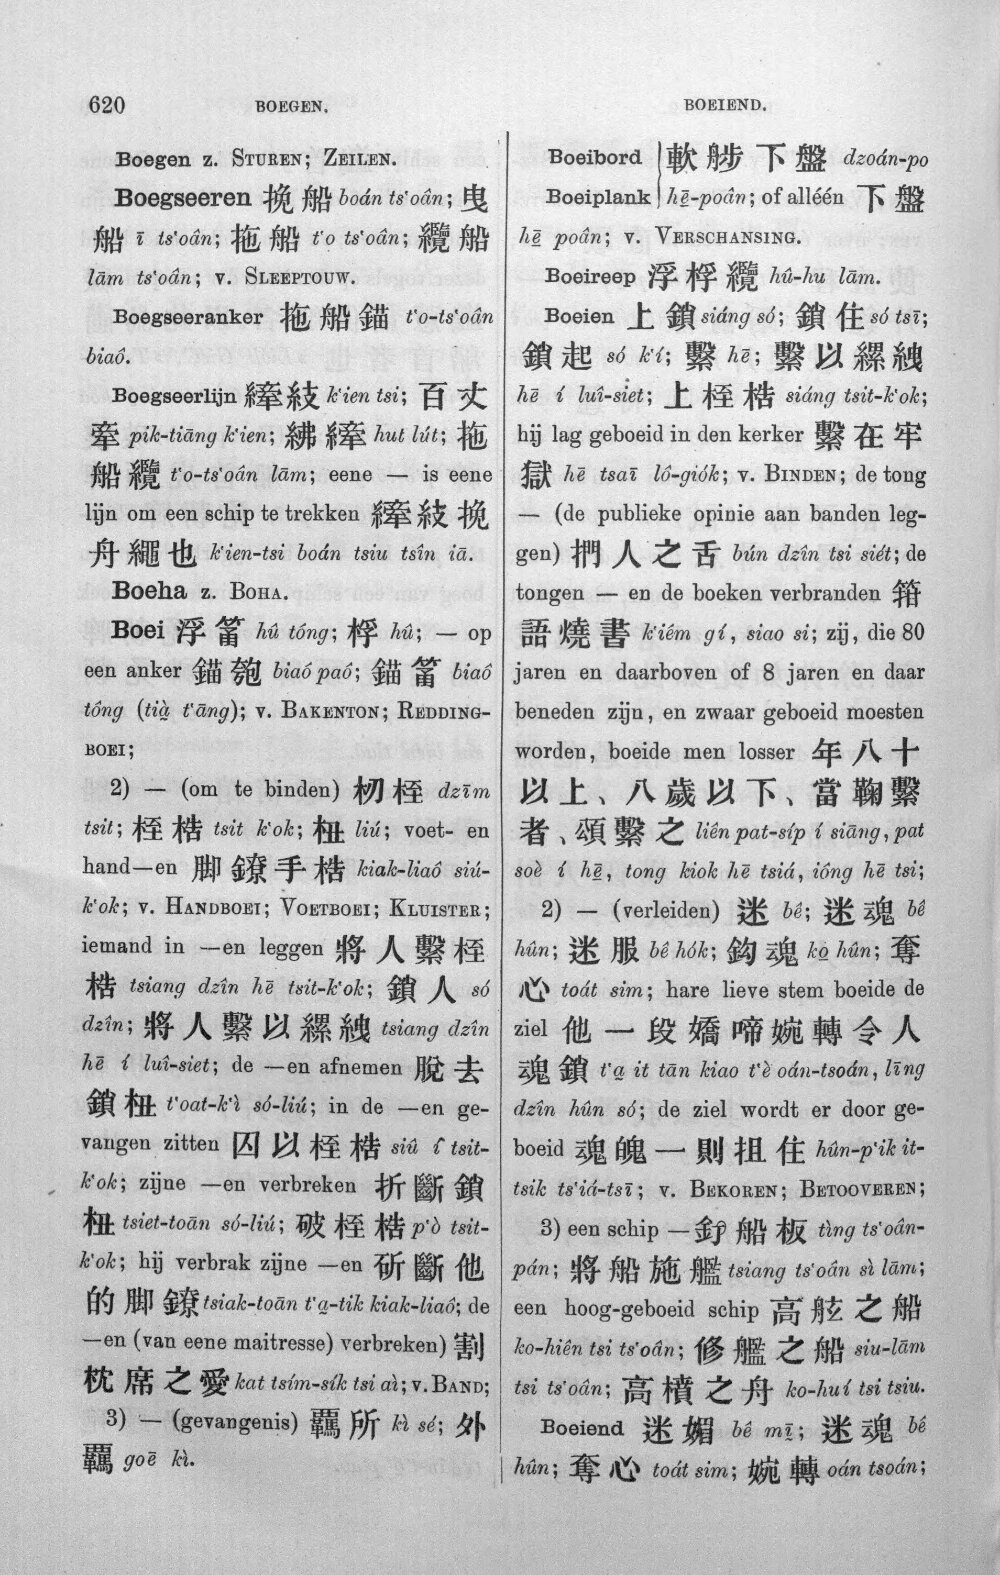 620
BOEGEN.
BOEIEND.
Boegen z. STUREN; ZEILEN.
Boegseeren 挽船 boán ts‘oân; 曳
船 ī ts‘oân; 拖船 t‘o ts‘oân; 纜船
lām ts‘oân; v. SLEEPTOUW.
Boegseeranker 拖船錨 t‘o-ts‘oân
biaô.
Boegseerlijn 縴紋 k‘ien tsi; 百丈
牽 pik-tiāng k‘ien; 紼縴 hut lút; 拖
船纜 t‘o-ts‘oân lām; eene — is eene
lijn om een schip te trekken 縴紋挽
舟繩也 k‘ien-tsi boán tsiu tsîn iā.
Boeha z. BOHA.
Boei 浮筩 hû tóng; 桴 hû; — op
een anker 錨匏 biaó paó; 錨筩 biaô
tóng (tià̤ t‘āng); v. BAKENTON; REDDING-
BOEI;
2) — (om te binden) 杒桎 dzīm
tsit; 桎梏 tsit k‘ok; 杻 liú; voet- en
hand—en 脚鐐手梏 kiak-liaô siú-
k‘ok; v. HANDBOEI; VOETBOEI; KLUISTER;
iemand in —en leggen 將人繫桎
梏 tsiang dzîn hē tsit-k‘ok; 鎖人 só
dzîn; 將人繫以縲絏 tsiang dzîn
hē í luî-siet; de —en afnemen 脫去
鎖杻 t‘oat-k‘ì só-liú; in de —en ge-
vangen zitten 囚以桎梏 siû í tsit-
k‘ok; zijne —en verbreken 折斷鎖
杻 tsiet-toān só-liú; 破桎梏 p‘ò tsit-
k‘ok; hij verbrak zijne —en 斫斷他
的脚鐐 tsiak-toān t‘a̤-tik kiak-liaô; de
—en (van eene maitresse) verbreken) 割
枕席之愛 kat tsím-sík tsi aì; v. BAND;
3) — (gevangenis) 羈所 kì sé; 外
羈 goē kì.
Boeibord 軟䑰下盤 dzoán-po
Boeiplank hē̤-poân; of alléén 下盤
hē̤ poân; v. VERSCHANSING.
Boeireep 浮桴纜 hû-hu lām.
Boeien 上鎖 siáng só; 鎖住 só tsī;
鎖起 só k‘í; 繫 hē; 繫以縲絏
hē í luî-siet; 上桎梏 siáng tsit-k‘ok;
hij lag geboeid in den kerker 繫在牢
獄 hē tsaī lô-giók; v. BINDEN; de tong
— (de publieke opinie aan banden leg-
gen) 捫人之舌 bún dzîn tsi siét; de
tongen — en de boeken verbranden 箝
語燒書 k‘iém gí, siao si; zij, die 80
jaren en daarboven of 8 jaren en daar
beneden zijn, en zwaar geboeid moesten
worden, boeide men losser 年八十
以上、八歲以下、當鞠繫
者、頌繫之 liên pat-síp í siāng, pat
soè í hē̤, tong kiok hē tsiá, iông hē tsi;
2) — (verleiden) 迷 bê; 迷魂 bê
hûn; 迷服 bê hók; 鈎魂 ko̤ hûn; 奪
心 toát sim; hare lieve stem boeide de
ziel 他一段嬌啼婉轉令人
魂鎖 t‘a̤ it tān kiao t‘è oán-tsoán, līng
dzîn hûn só; de ziel wordt er door ge-
boeid 魂魄一則抯住 hûn-p‘ik it-
tsik ts‘iá-tsī; v. BEKOREN; BETOOVEREN;
3) een schip — 釘船板 tìng ts‘oân-
pán; 將船施艦 tsiang ts‘oân sì lām;
een hoog-geboeid schip 高舷之船
ko-hiên tsi ts‘oân; 修艦之船 siu-lām
tsi ts‘oân; 高樻之舟 ko-huí tsi tsiu.
Boeiend 迷媚 bê mī̤; 迷魂 bê
hûn; 奪心 toát sim; 婉轉 oán tsoán;